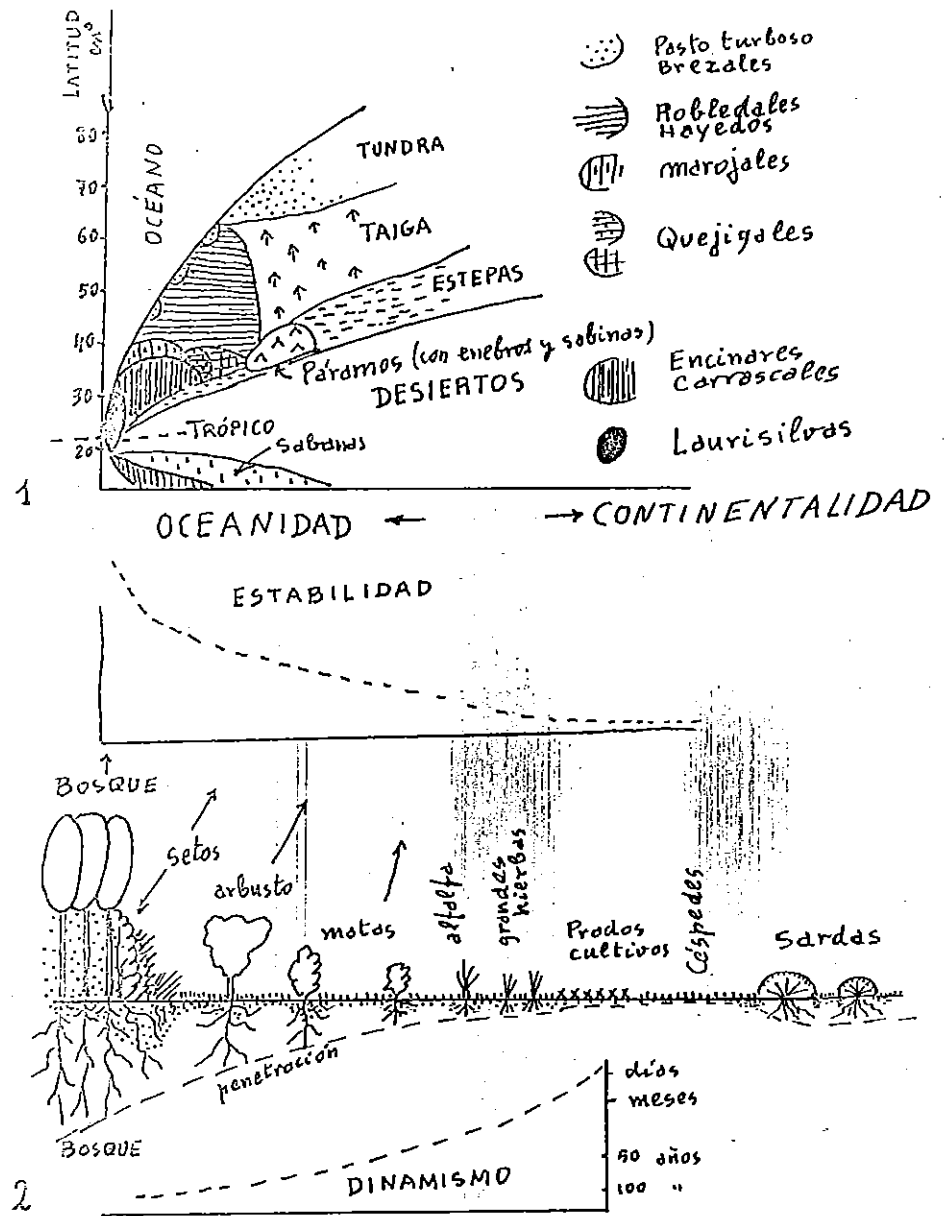 LATITUD
80
70
60
50
40
30
20
OCÉANO
TUNDRA
TAIGA
ESTEPAS
Páramos (con enebros y sabinas)
DESIERTOS
TRÓPICO
Sabanas
Pasto turboso
Brezales
Robledales
Hayedos
marojales
Quejigales
Encinares
Carrascales
Laurisilvas
1
OCEANIDAD ← → CONTINENTALIDAD
ESTABILIDAD
BOSQUE
setos
arbusto
matas
alfalfa
grandes
hierbas
Prados
cultivos
Céspedes
Sardas
penetración
BOSQUE
días
meses
50 años
100 "
DINAMISMO
2